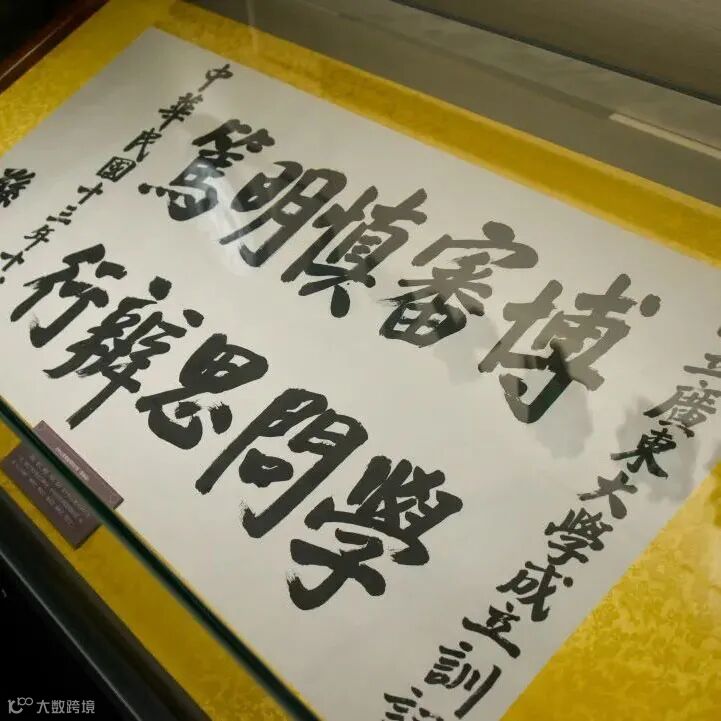 立廣東大學成立訓
博學
審問
慎思
明辨
篤行
中華民國十三年十
孫
大数跨境